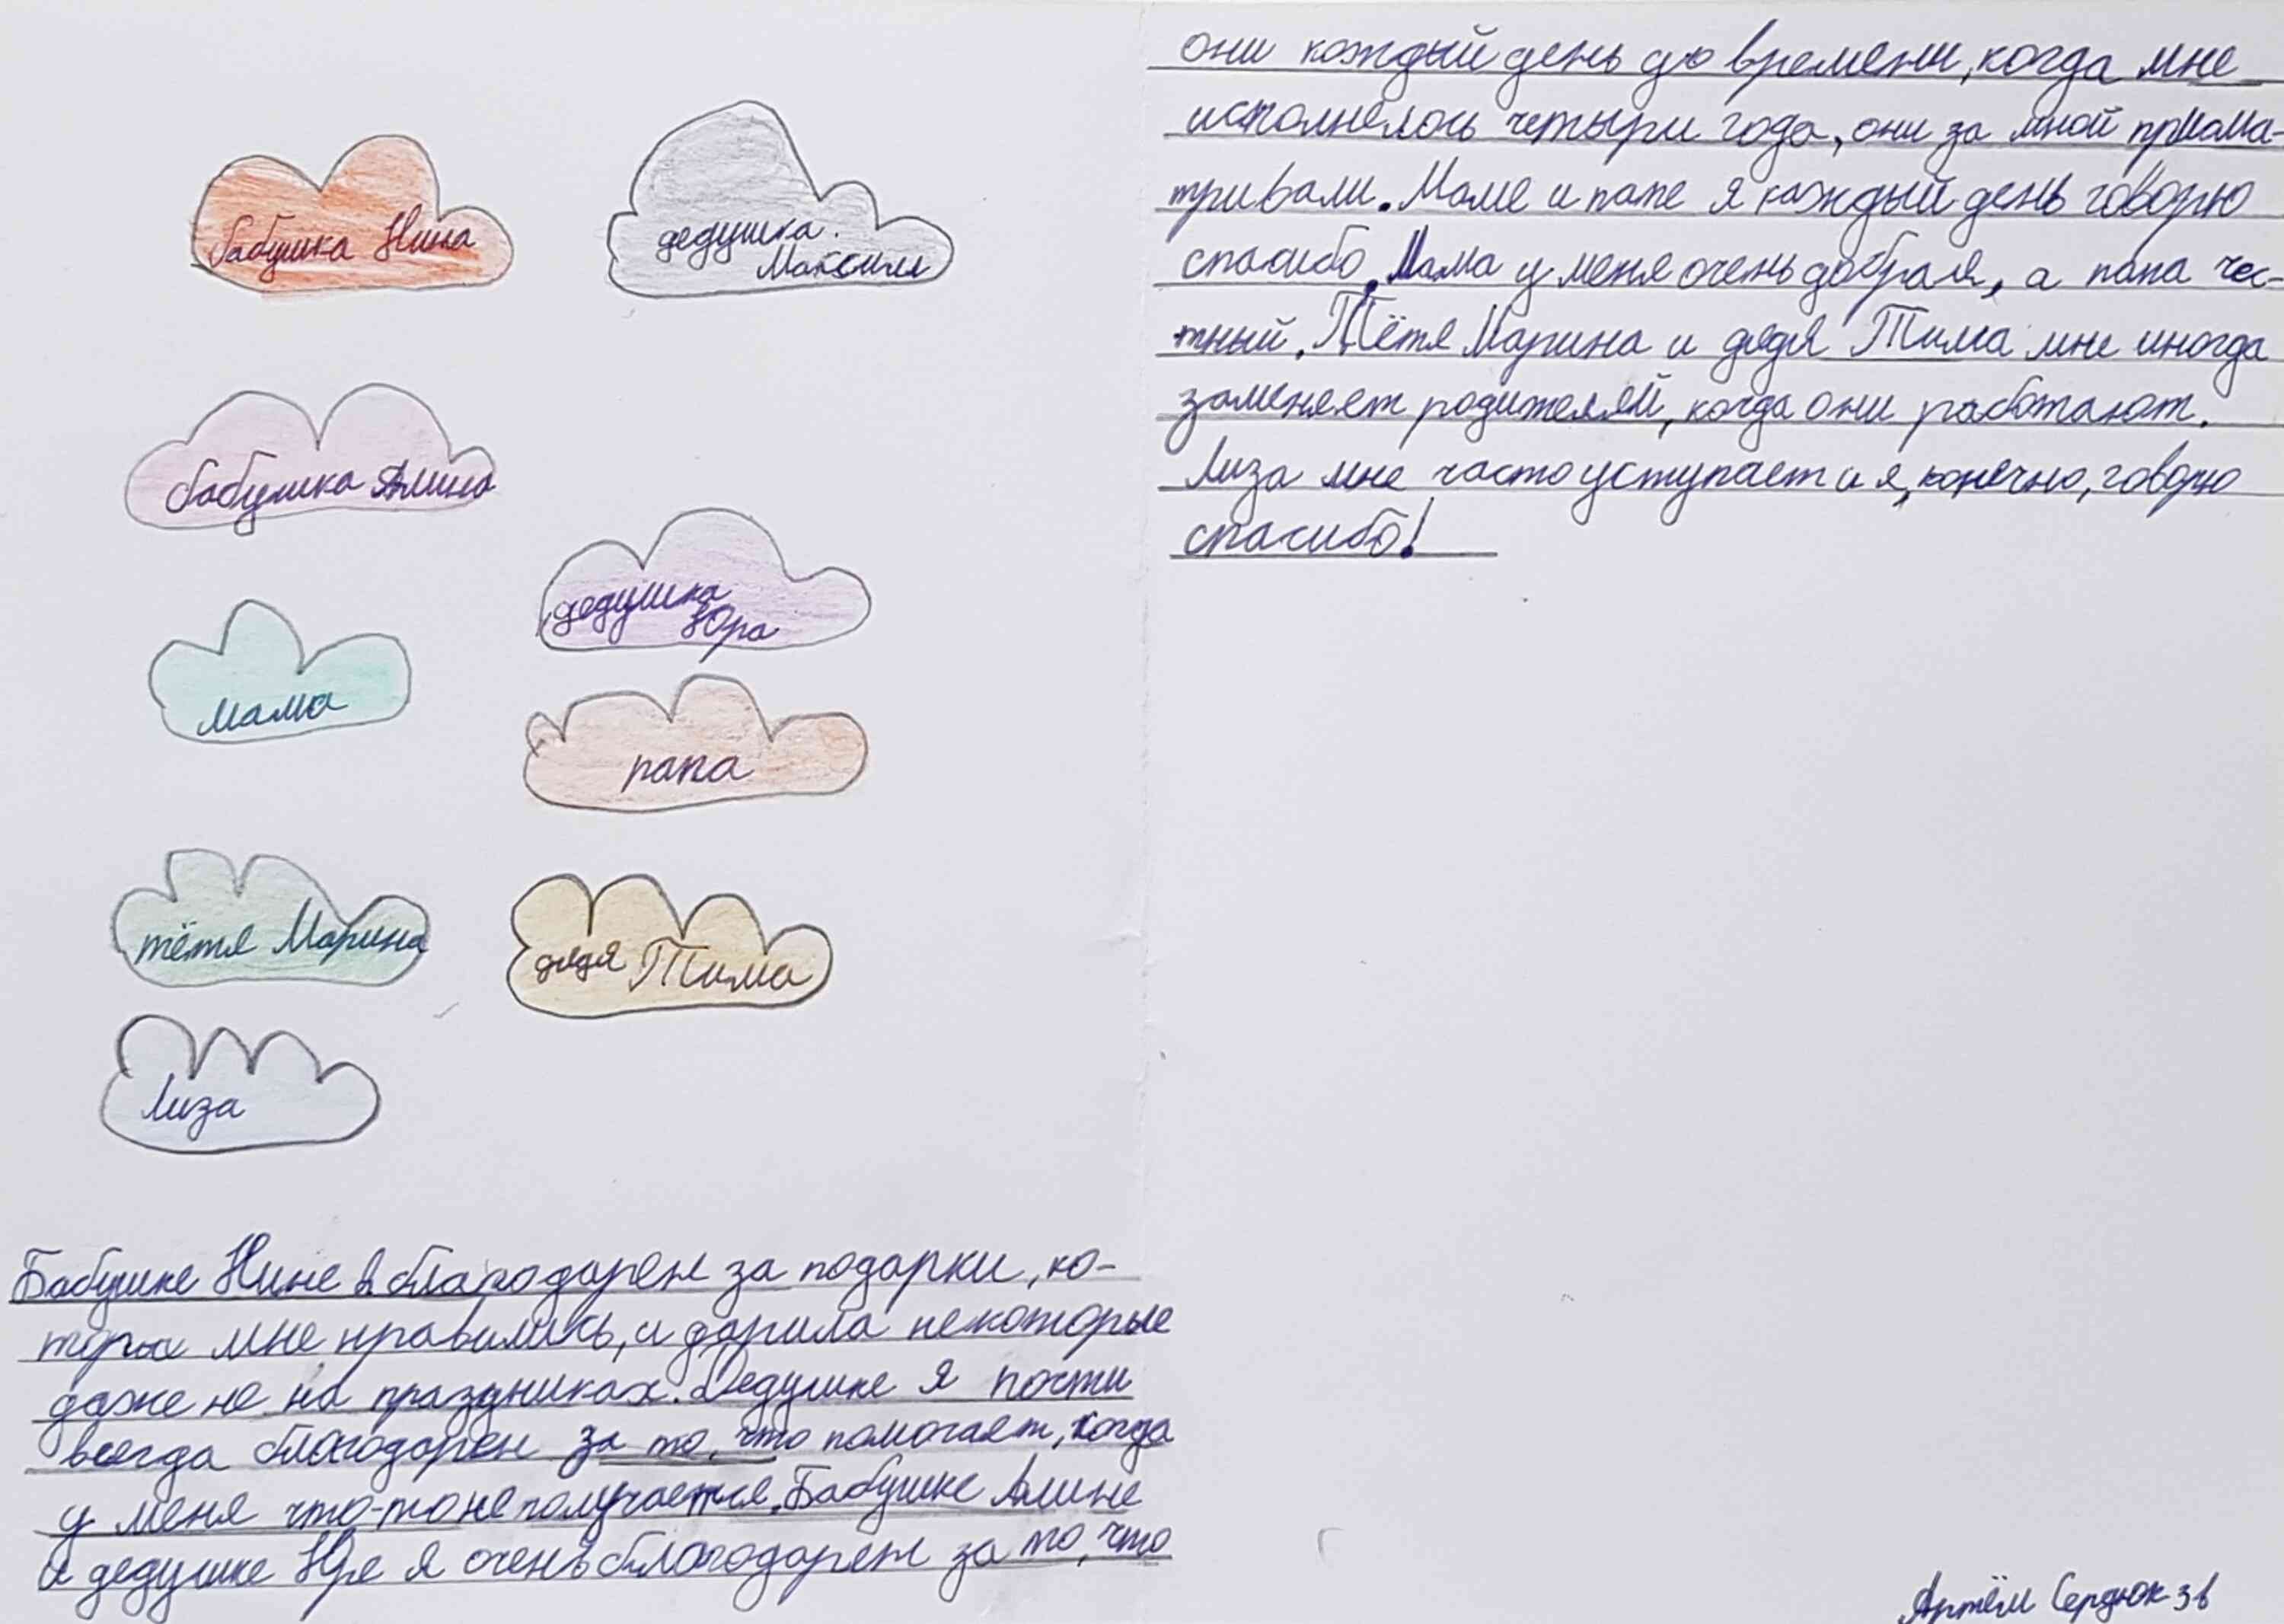 бабушка Нина
дедушка
Максим
бабушка Алина
дедушка
Юра
мама
папа
тётя Марина
дядя Тима
Лиза
Бабушке Нине я благодарен за подарки, ко-
торые мне нравились, и дарила некоторые
даже не на праздниках. Дедушке я почти
всегда благодарен за то, что помогает, когда
у меня что-то не получается. Бабушке Алине
и дедушке Юре я очень благодарен за то, что
они каждый день до времени, когда мне
исполнелось четыри года, они за мной присма-
тривали. Маме и папе я каждый день говорю
спасибо. Мама у меня очень добрая, а папа чес-
тный. Тётя Марина и дядя Тима мне иногда
заменяет родителей, когда они работают.
Лиза мне часто уступает и я, конечно, говорю
спасибо!
Артём Сердюк 3в